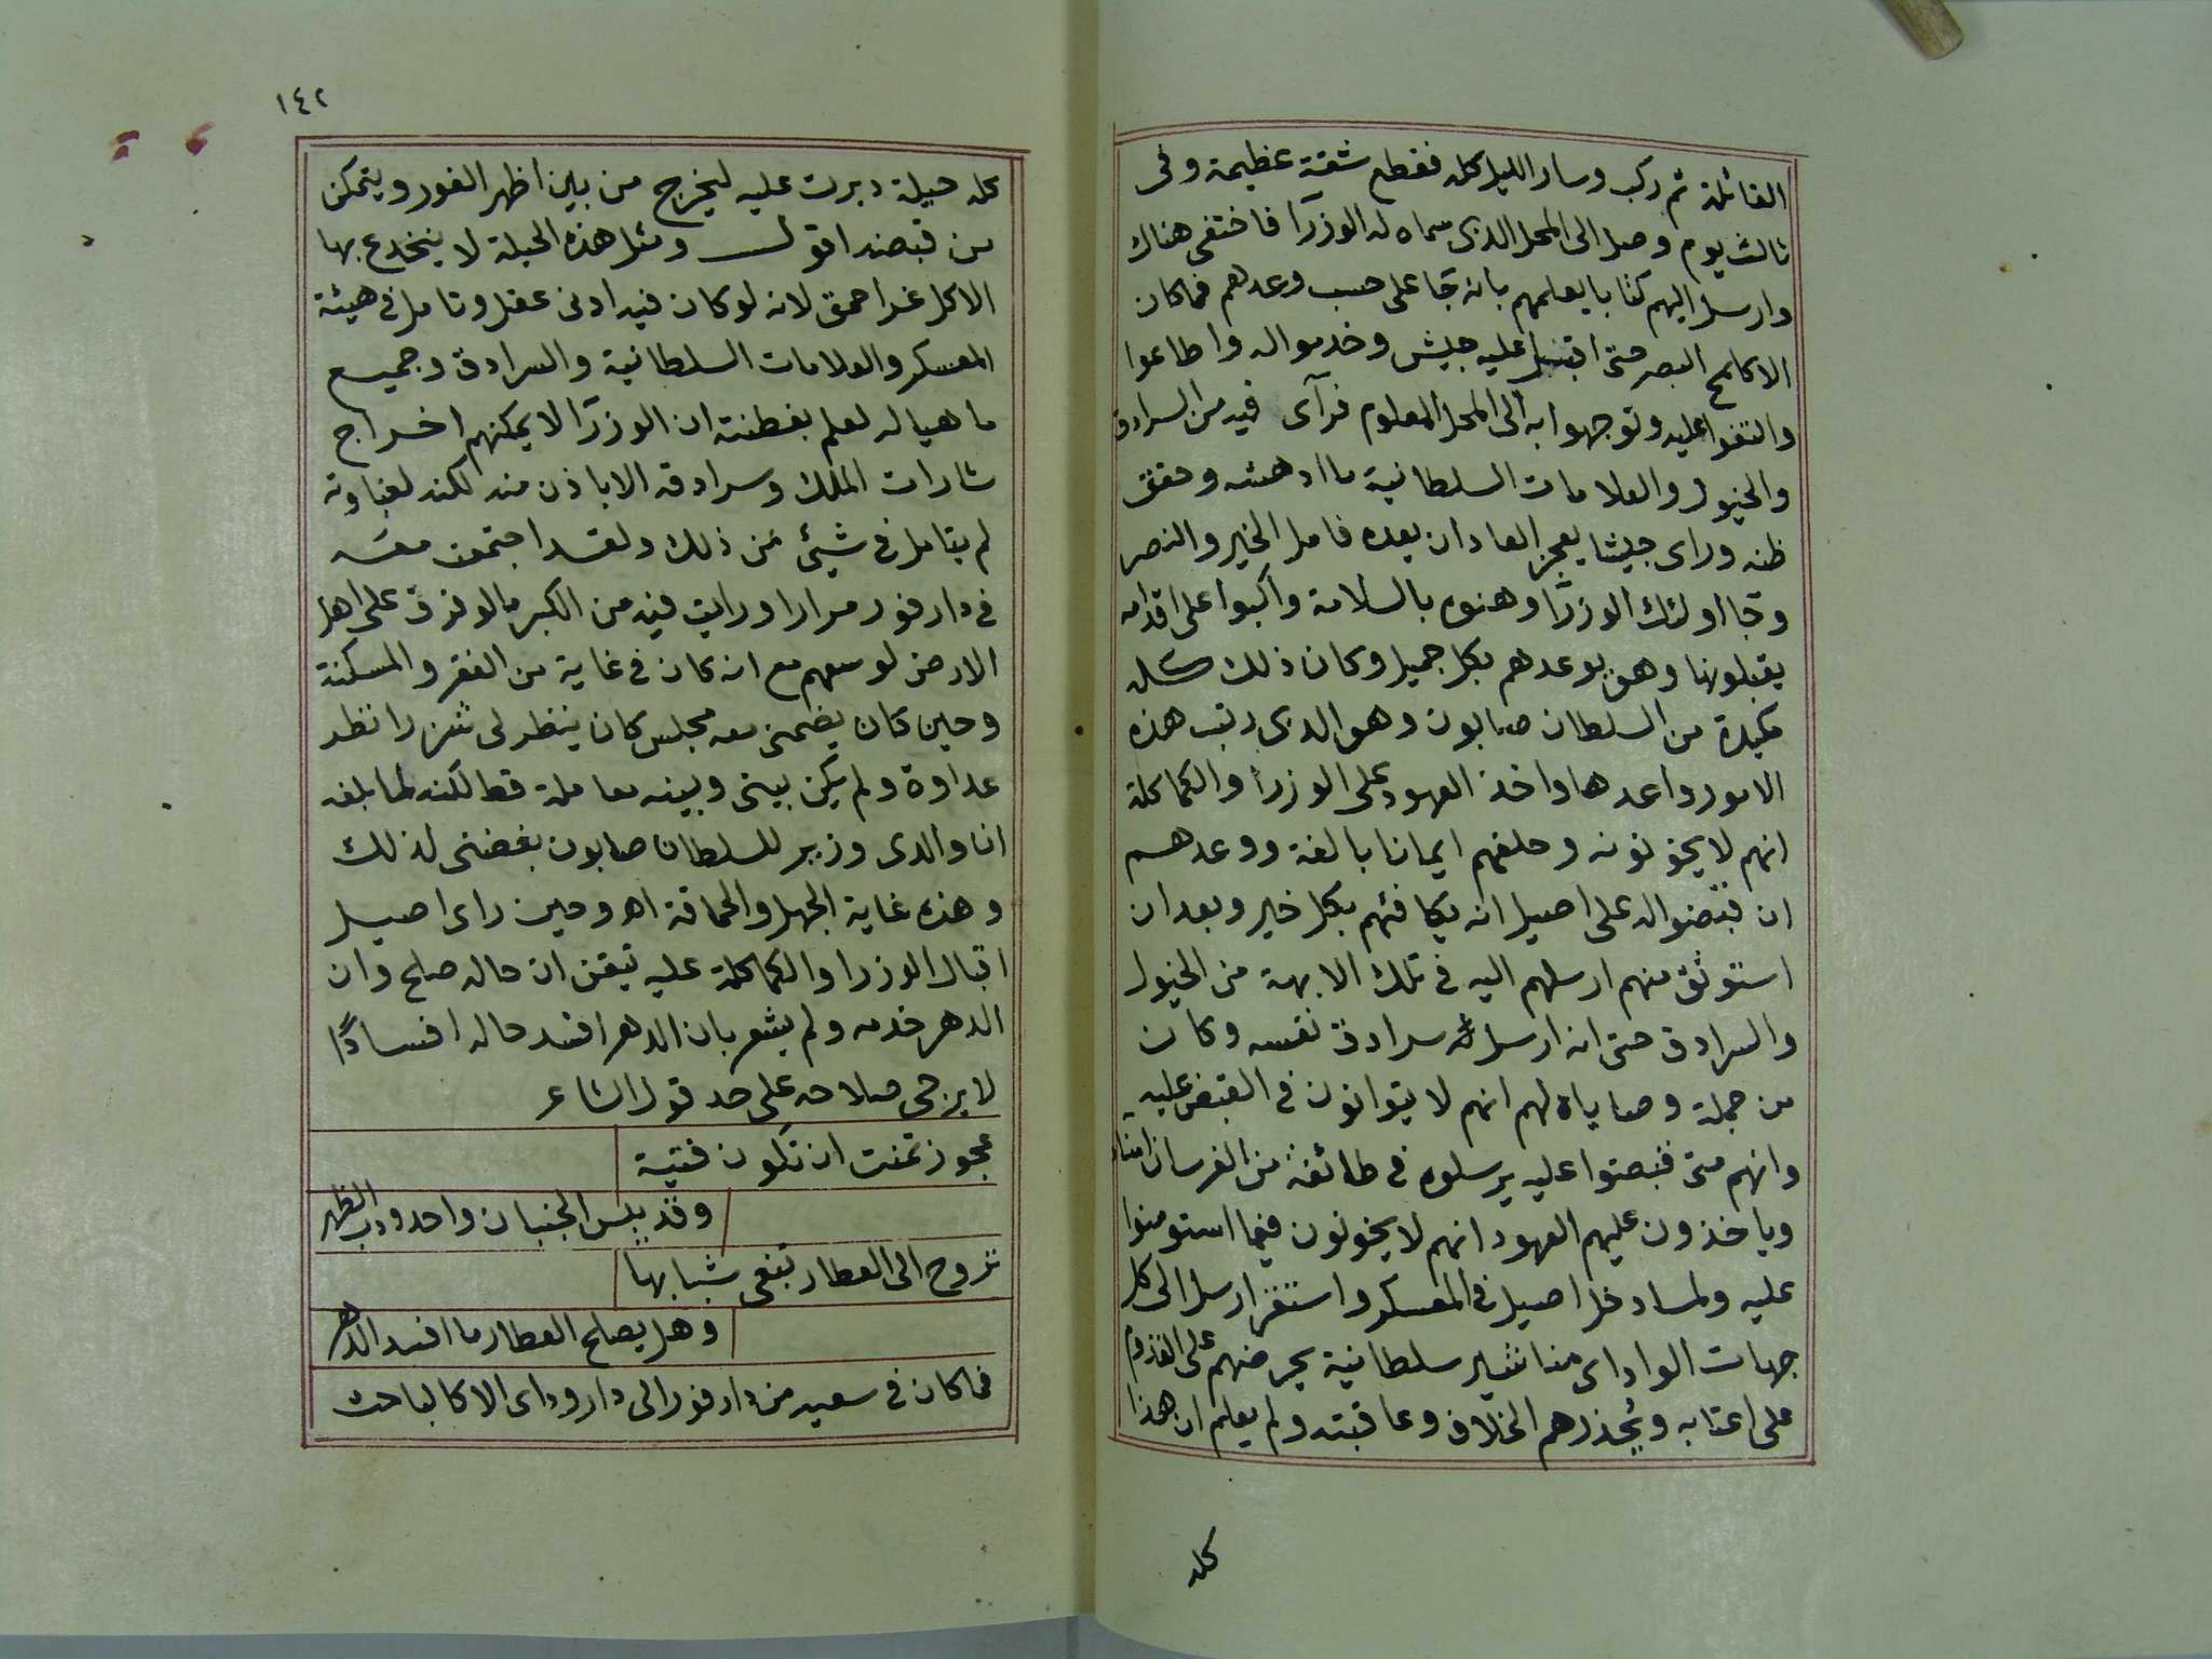 القائلة ثم ركب وسار الليل كله فقطع شقة عظيمة وفى
ثالث يوم وصل الى المحل الذى سماه له الوزرآ فاختفى هناك
وارسل اليهم كتابا يعلمهم بانه جا على حسب وعدهم فما كان
الا كلمح البصر حتى اقبل عليه جيش وخدموا له واطاعوا
والتفوا عليه وتوجهوا به الى المحل المعلوم فرآى فيه من السرادق
والخيول والعلامات السلطانية ما ادهشه وحقق
ظنه وراى جيشا يعجز العاد ان يعده فامل الخير والنصر
وجا اولئك الوزرآ وهنوه بالسلامة واكبوا على اقدامه
يقبلونها وهو يوعدهم بكل جميل وكان ذلك كله
مكيدة من السلطان صابون وهو الذى رتب هذه
الامور واعدها واخذ العهود على الوزرأ والكماكلة
انهم لا يخونونه وحلفهم ايمانا بالغة ووعدهم
ان قبضوا له على اصيل انه يكافئهم بكل خير وبعد ان
استوثق منهم ارسلهم اليه فى تلك الابهة من الخيول
والسرادق حتى انه ارسل له سرادق نفسه وكان
من جملة وصاياه لهم انهم لا يتوانون فى القبض عليه
وانهم متى قبضوا عليه يرسلوه فى طائفة من الفرسان امناء
وياخذون عليهم العهود انهم لا يخونون فيما استومنوا
عليه ولما دخل اصيل فى المعسكر واستقر ارسل الى كل
جهات الواداى مناشير سلطانية يحرضهم على القدوم
على اعتابه ويحذرهم الخلاف وعاقبته ولم يعلم ان هذا
كله
١٤٢
كله حيلة دبرت عليه ليخرج من بين اظهر الفور ويتمكن
من قبضه اقول ومثل هذه الحيلة لا ينخدع بها
الا كل غر احمق لانه لو كان فيه ادنى عقل وتامل فى هيئة
المعسكر والعلامات السلطانية والسرادق وجميع
ما هيا له لعلم بفطنته ان الوزرآ لا يمكنهم اخراج
شارات الملك وسرادقه الا باذن منه لكنه لغباوته
لم يتامل فى شيئ من ذلك ولقد اجتمعت معه
فى دارفور مرارا ورايت فيه من الكبر ما لو فرق على اهل
الارض لوسعهم مع انه كان فى غاية من الفقر والمسكنة
وحين كان يضمنى معه مجلس كان ينظر لى شزرا نظر
عداوة ولم يكن بينى وبينه معاملة قط لكنه لما بلغه
ان والدى وزير للسلطان صابون بغضنى لذلك
وهذه غاية الجهل والحماقة اه وحين راى اصيل
اقبال الوزرا والكماكلة عليه تيقن ان حاله صلح وان
الدهر خدمه ولم يشعر بان الدهر افسد حاله افسادًا
لا يرجى صلاحه على حد قول الشاعر
عجوز تمنت ان تكون فتية
وقد يبس الجنبان واحدودب الظهر
تروح الى العطار تبغى شبابها
وهل يصلح العطار ما افسد الدهر
فما كان فى سعيه من دارفور الى دار وداى الا كالباحث